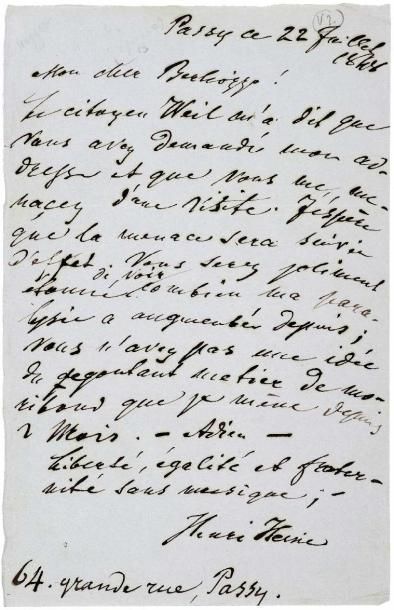 Passy ce 22 Juillet
1848
V2.
Mon cher Berliozzo!
Le citoyen Weil m'a dit que
vous avez demandé mon ad-
dresse et que vous me me-
nacez d'une visite. J'espère
que la menace sera suivie
d'effet. Vous serez joliment
étonné de voir combien ma para-
lysie a augmentée depuis;
Vous n'avez pas une idée
du degoutant metier de mo-
ribond que je mène depuis
2 Mois. — Adieu —
Liberté, égalité et frater-
nité sans musique; —
Henri Heine
64. grande rue, Passy.